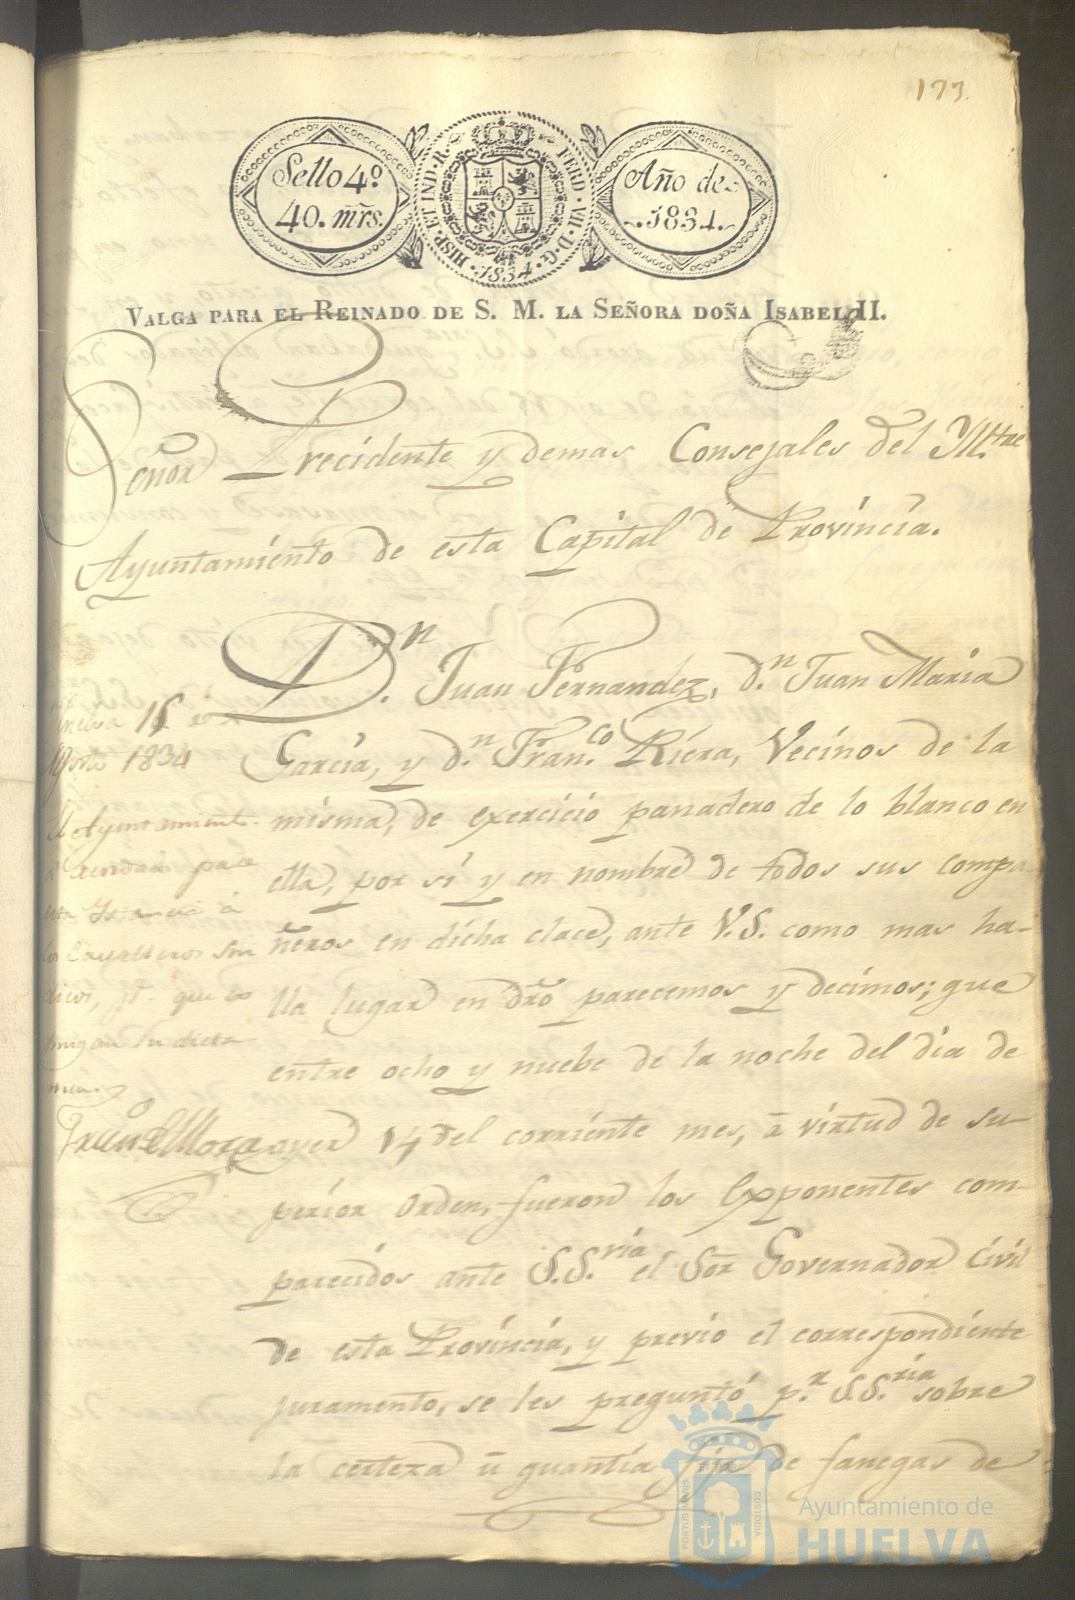 173.
Sello 4º
40. mrs.
HISP. ET IND. R. FERD. VII. D. G. 1834.
Año de
1834.
VALGA PARA EL REINADO DE S. M. LA SEÑORA DOÑA ISABEL II.
Señor Precidente y demas Consejales del Yll.tre
Ayuntamiento de esta Capital de Provincia.
D.n Juan Fernandez, d.n Juan Maria
Garcia, y d.n Fran.co Riera, Vecinos de la
misma, de exercicio panadero de lo blanco en
ella, por sí y en nombre de todos sus compa
ñeros en dicha clace, ante V.S. como mas ha-
lla lugar en dro parecemos y decimos; que
entre ocho y nuebe de la noche del dia de
ayer 14 del corriente mes, á virtud de su-
perior orden, fueron los Exponentes com-
parecidos ante S.S.ria el Sor Governador Civil
de esta Provincia, y previo el correspondiente
juramento, se les preguntó p.r S.S.ria sobre
la certeza ú quantia fija de fanegas de
Huelva 15
Agosto 1834
El Ayuntamient.
acordará pase
esta Ystancia á
los Cavalleros Sin
dicos, que
su dicta
men.
Fran.co de Mora
PORTUS MARIS
CUSTODIA
Ayuntamiento de
HUELVA